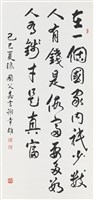 在一個國家內祇少數
人有錢是假富要多數
人有錢才是真富
己巳夏 國父嘉言